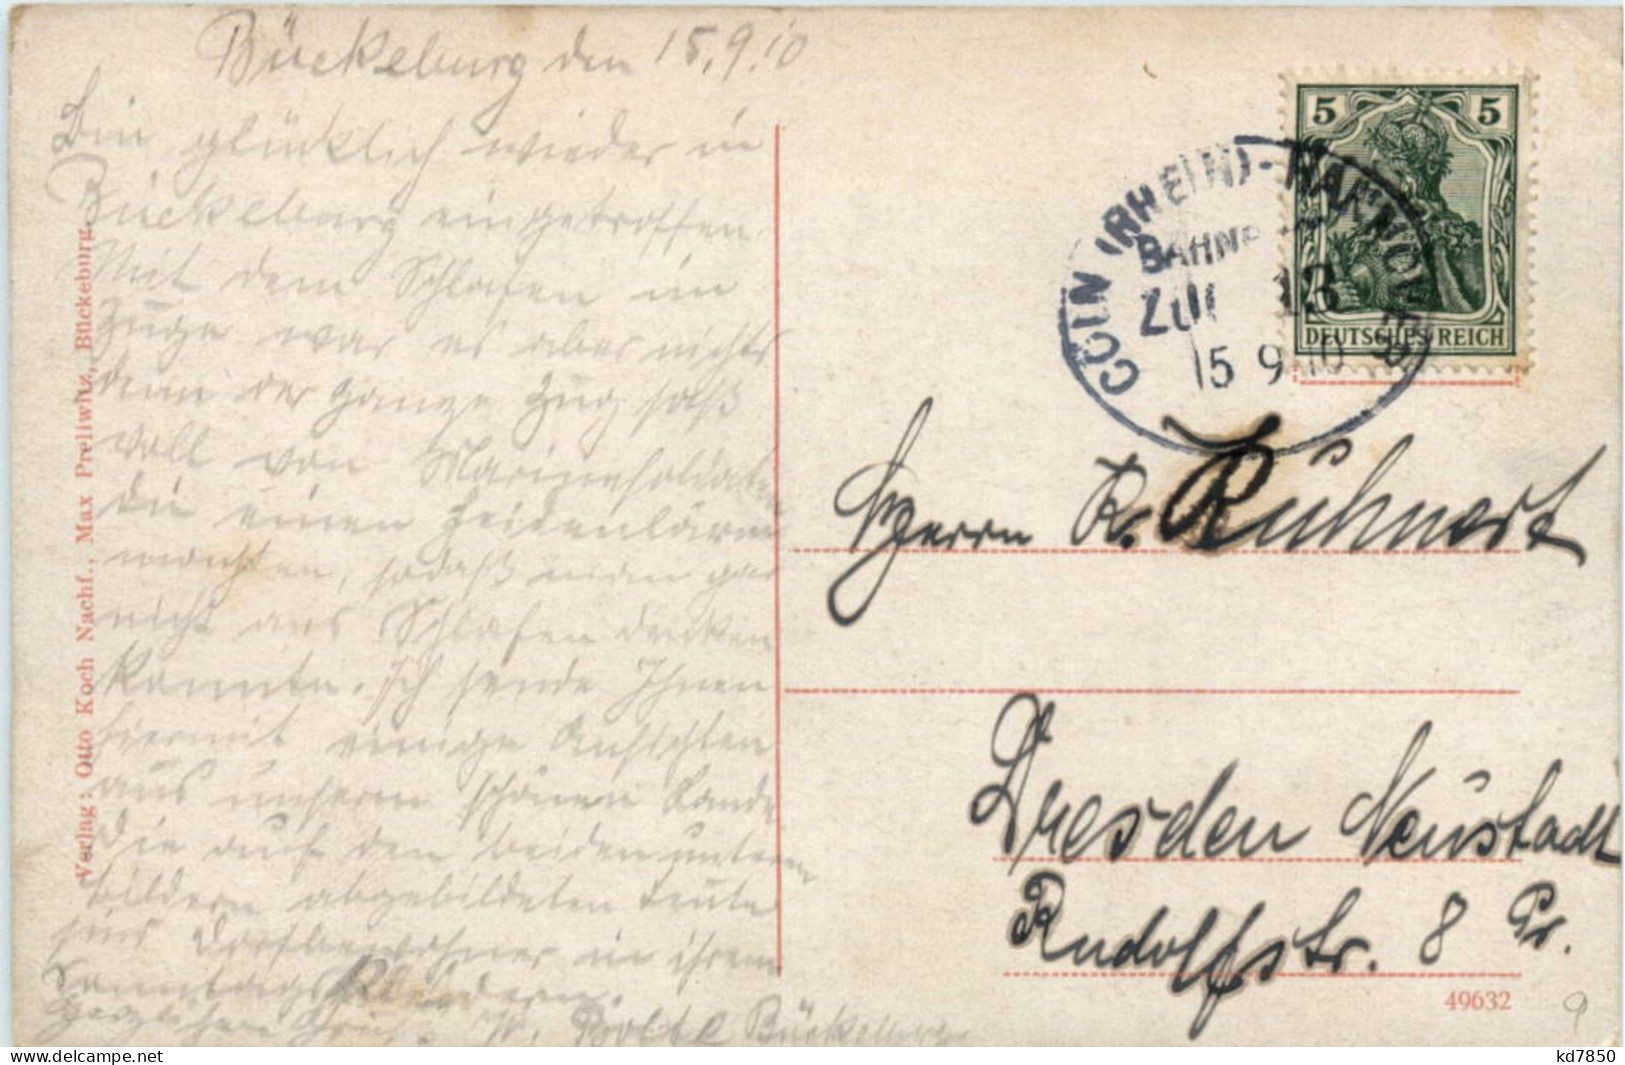 Bückeburg den 15.9.10
Bin glücklich wieder in
Bückeburg eingetroffen.
Mit dem Schlafen im
Zuge war es aber nichts
denn der ganze Zug saß
voll von Marinesoldaten
die einen Heidenlärm
machten, sodaß man gar
nicht ans Schlafen denken
konnte. Ich sende Ihnen
hiermit einige Ansichten
aus unserm schönen Lande
Die auf den beiden untern
Bildern abgebildeten Leute
sind Dorfbewohner in ihren
Sonntagskleidern.
Herzlichen Gruß. W. Bolte Bückeburg
Verlag: Otto Koch Nachf., Max Prellwitz, Bückeburg.
5 5
DEUTSCHES REICH
CÖLN (RHEIN)-HANNOVER
BAHNP
ZUG 13
15 9 10
Herrn R. Kühnert
Dresden Neustadt
Rudolfstr. 8 Pr.
49632
9
kd7850
www.delcampe.net